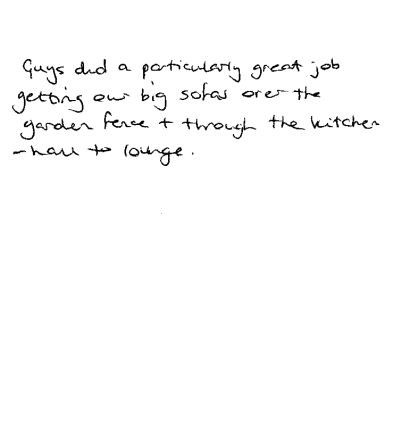 Guys did a particularly great job
getting our big sofas over the
garden fence + through the kitchen
- hall to lounge.